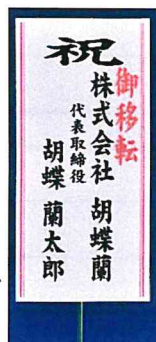 祝
御移転
株式会社 胡蝶蘭
代表取締役
胡蝶 蘭太郎